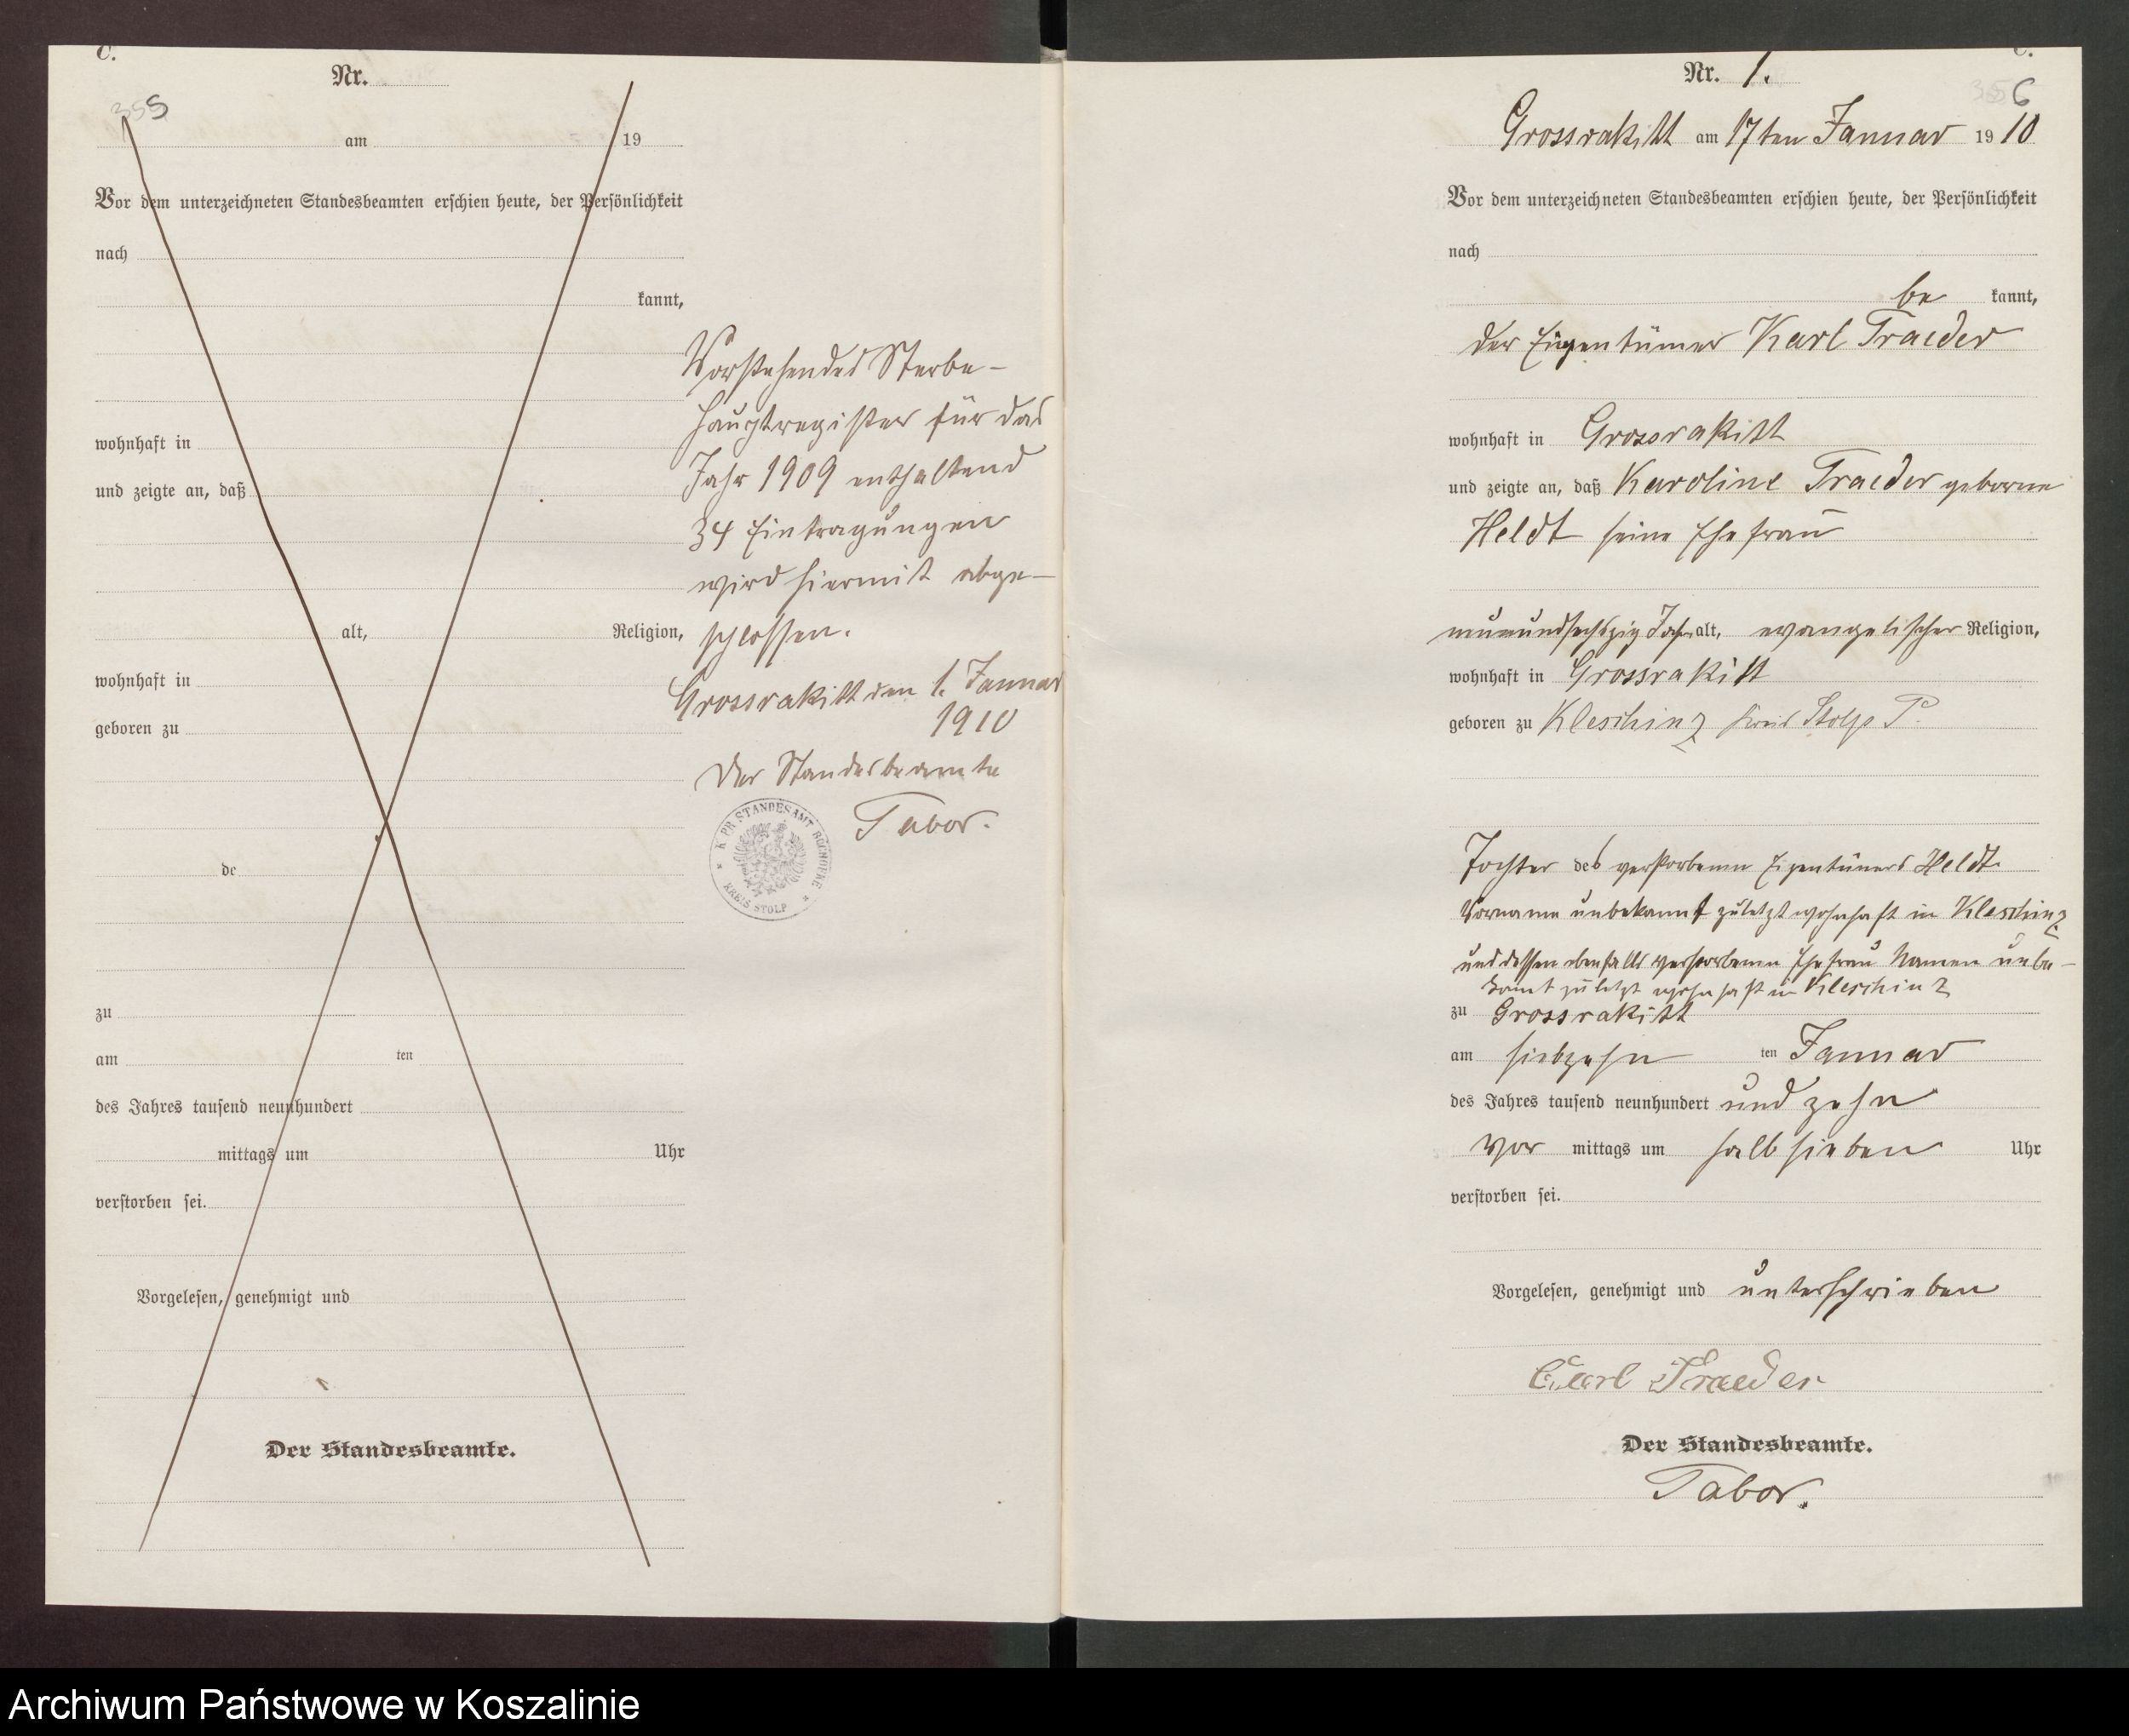 C.
Nr.
355
am 19
Vor dem unterzeichneten Standesbeamten erschien heute, der Persönlichkeit
nach
kannt,
wohnhaft in
und zeigte an, daß
alt, Religion,
wohnhaft in
geboren zu
de
zu
am ten
des Jahres tausend neunhundert
mittags um Uhr
verstorben sei.
Vorgelesen, genehmigt und
Der Standesbeamte.
Vorstehendes Sterbe-
hauptregister für das
Jahr 1909 enthaltend
34 Eintragungen
wird hiermit abge-
schlossen.
Grossrakitt den 1. Januar
1910
Der Standesbeamte
Tabor.
K. PR. STANDESAMT
KREIS STOLP
C.
Nr. 1.
356
Grossrakitt am 17ten Januar 1910
Vor dem unterzeichneten Standesbeamten erschien heute, der Persönlichkeit
nach
be kannt,
der Eigentümer Karl Traeder
wohnhaft in Grossrakitt
und zeigte an, daß Karoline Traeder geborene
Heldt seine Ehefrau
neunundsechszig Jahr alt, evangelischer Religion,
wohnhaft in Grossrakitt
geboren zu Kleschinz Kreis Stolp P.
Tochter des verstorbenen Eigentümers Heldt
Vorname unbekannt zuletzt wohnhaft in Kleschinz
und dessen ebenfalls verstorbenen Ehefrau Namen unbe-
kannt zuletzt wohnhaft in Kleschinz
zu Grossrakitt
am siebzehn ten Januar
des Jahres tausend neunhundert und zehn
vor mittags um halb sieben Uhr
verstorben sei.
Vorgelesen, genehmigt und unterschrieben
Carl Traeder
Der Standesbeamte.
Tabor.
Archiwum Państwowe w Koszalinie